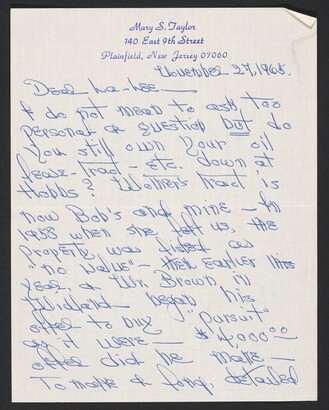 Mary S. Taylor
140 East 9th Street
Plainfield, New Jersey 07060
November 27, 1965.
Dear La-Lee —
I do not mean to ask too
personal a question but do
you still own your oil
lease-tract-etc. down at
Hobbs? Mother's tract is
now Bob's and mine — In
1958 when she left us, the
property was listed as
"no value" — then earlier this
year, a Mr. Brown in
Midland began his
"pursuit"
offer to buy
as it were — $4,000.00
offer did he make —
To make a long, detailed